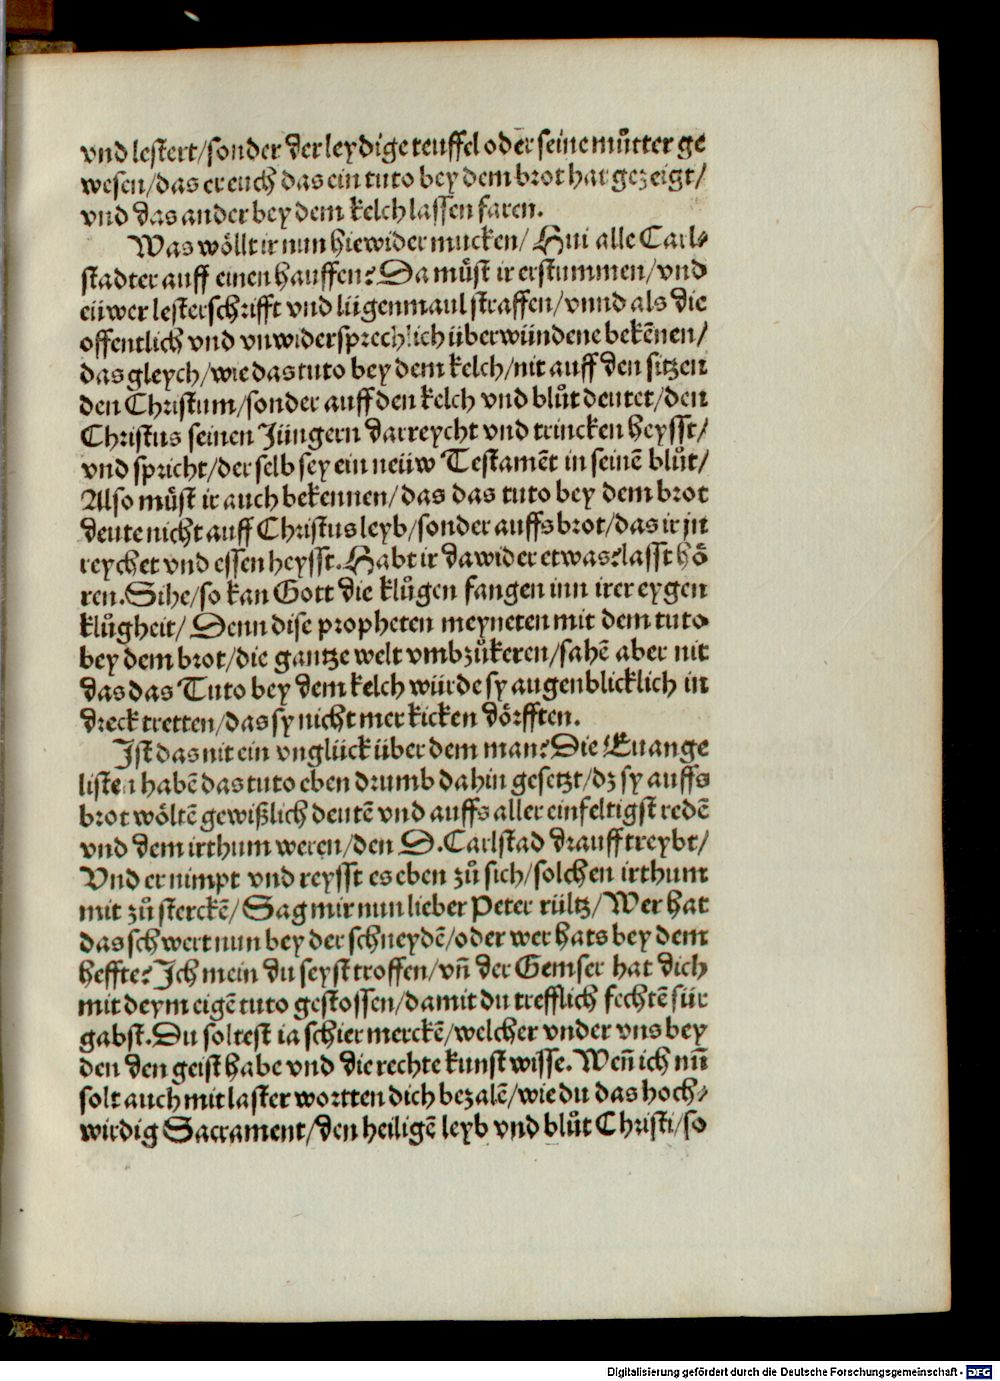 vnd lestert/sonder der leydige teuffel oder seine můtter ge
wesen/das er euch das ein tuto bey dem brot hat gezeigt/
vnd das ander bey dem kelch lassen faren.
Was wöllt ir nun hie wider mucken/ Hui alle Carl-
stadter auff einen hauffen? Da můst ir erstummen/vnd
eüwer lesterschrifft vnd lügenmaul straffen/vnnd als die
offentlich vnd vnwidersprechlich überwündene bekēnen/
das gleych/wie das tuto bey dem kelch/nit auff den sitzen
den Christum/sonder auff den kelch vnd blůt deutet/den
Christus seinen Jüngern darreycht vnd trincken heysst/
vnd spricht/der selb sey ein neüw Testamēt in seinē blůt/
Also můst ir auch bekennen/das das tuto bey dem brot
deute nicht auff Christus leyb/sonder auffs brot/das ir jn
reychet vnd essen heysst. Habt ir dawider etwas?lasst hö
ren. Sihe/so kan Gott die klůgen fangen inn irer eygen
klůgheit/ Denn dise propheten meyneten mit dem tuto
bey dem brot/die gantze welt vmbzůkeren/sahē aber nit
das das Tuto bey dem kelch würde sy augenblicklich in
dreck tretten/das sy nicht mer kicken dörfften.
Ist das nit ein vnglück über dem man? Die Euange
listen habē das tuto eben drumb dahin gesetzt/dz sy auffs
brot wöltē gewißlich deutē vnd auffs aller einfeltigst redē
vnd dem irthum weren/den D. Carlstad drauff treybt/
Vnd er nimpt vnd reysst es eben zů sich/solchen irthum
mit zů sterckē/ Sag mir nun lieber Peter rültz/Wer hat
das schwert nun bey der schneydē/oder wer hats bey dem
heffte? Ich mein du seyst troffen/vn̄ der Gemser hat dich
mit deym eigē tuto gestossen/damit du trefflich fechtē für
gabst. Du soltest ia schier merckē/welcher vnder vns bey
den den geist habe vnd die rechte kunst wisse. Wen̄ ich nu̅
solt auch mit laster wortten dich bezalē/wie du das hoch-
wirdig Sacrament/den heiligē leyb vnd blůt Christi/so
Digitalisierung gefördert durch die Deutsche Forschungsgemeinschaft - DFG